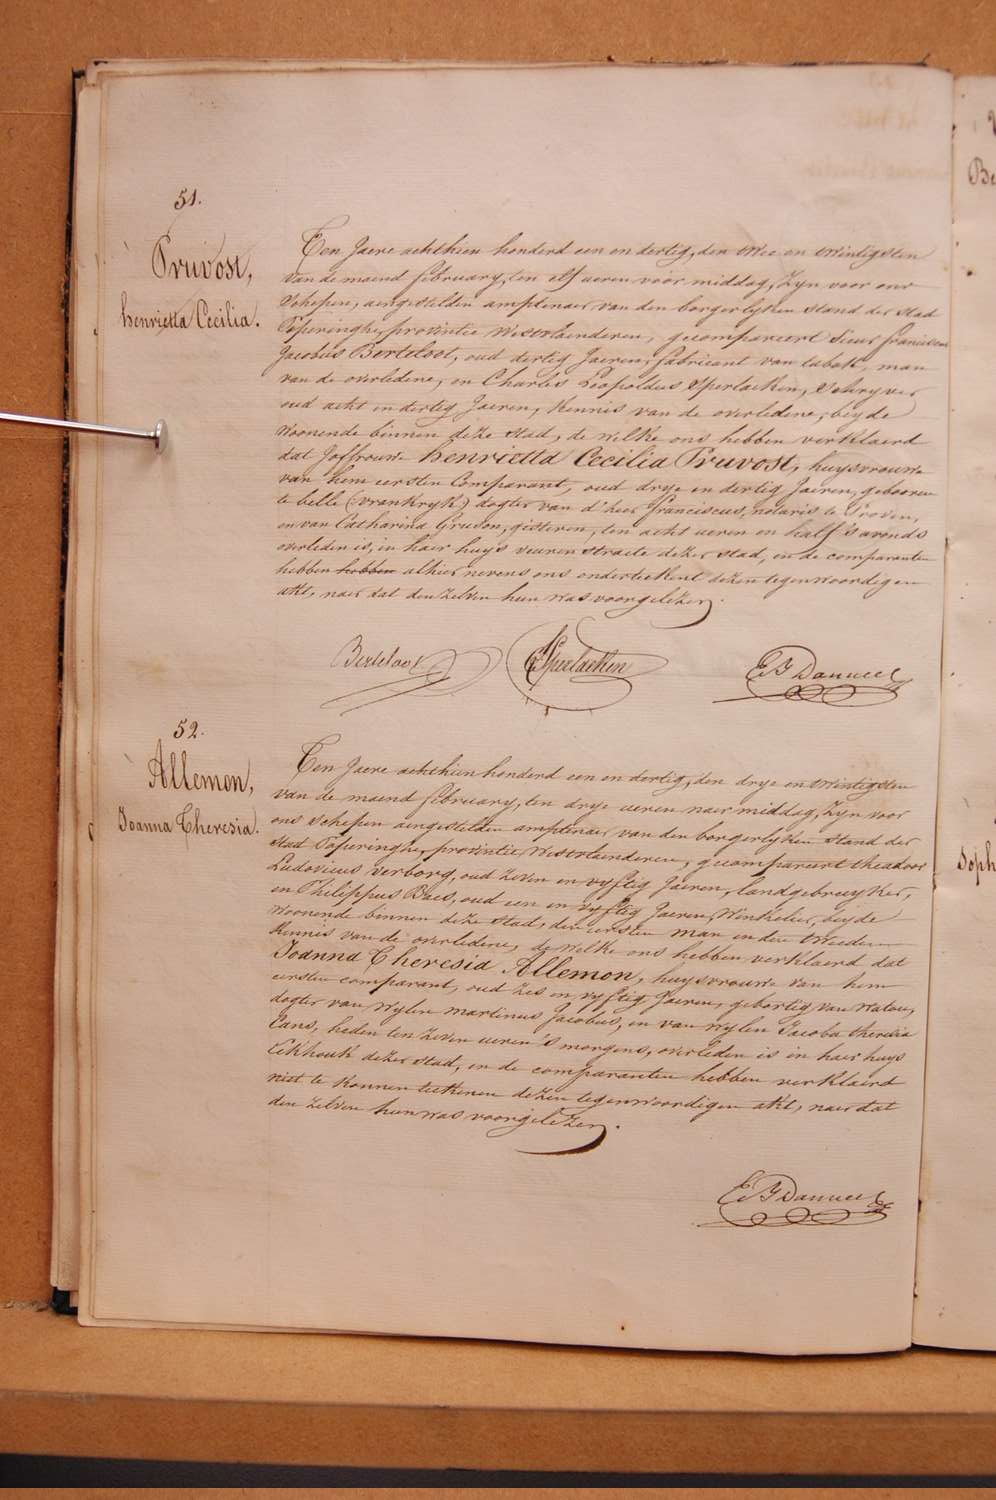 51.
Pruvost,
henrietta Cecilia.
Ten Jaere achthien honderd een en dertig, den twee en twintigsten
van de maend february, ten elf ueren voor middag, Zyn voor ons
Schepen, aengestelden amptenaer van den borgerlyken Stand der Stad
Poperinghe, provintie Westvlaenderen, gecompareert Sieur franciscus
Jacobus Berteloot, oud dertig Jaeren, fabricant van tabak, man
van de overledene, en Charles Leopoldus Sperlaeken, Schryver
oud acht en dertig Jaeren, Kennis van de overledene, beyde
Woonende binnen deze Stad, de welke ons hebben verklaerd
dat Jofvrouw henrietta Cecilia Pruvost, huysvrouwe
van hem eersten Comparant, oud drye en dertig Jaeren, gebooren
te belle (vrankryk) dogter van d'heer franciscus, notaris te Proven,
en van Catharina Gruson, gisteren, ten acht ueren en half 's avonds
overleden is, in haer huys veurenstraete dezer stad, en de comparanten
hebben hebben alhier nevens ons onderteekent dezen tegenwoordigen
akt, naer dat den zelven hun was voorgelezen.
Berteloot Sperlaeken
52.
Allemon,
Joanna Theresia.
Ten Jaere achthien honderd een en dertig, den drye en twintigsten
van de maend february, ten drye ueren naer middag, Zyn voor
ons Schepen aengestelden amptenaer van den borgerlyken Stand der
Stad Poperinghe, provintie Westvlaenderen, gecompareert theodoor
Ludovicus verborg, oud Zeven en vyftig Jaeren, landgebruyker,
en Philippus Baes, oud een en vyftig Jaeren, Winkelier, beyde
Woonende binnen deze Stad, den eersten man en den tweeden
Kennis van de overledene, de welke ons hebben verklaerd dat
Joanna Theresia Allemon, huysvrouwe van hem
eersten comparant, oud Zes en vyftig Jaeren, gebortig van Watou,
dogter van wylen martinus Jacobus, en van wylen Jacoba theresia
Cans, heden ten Zeven ueren 's morgens, overleden is in haer huys
Eekhouk dezer stad, en de comparanten hebben verklaerd
niet te konnen teekenen dezen tegenwoordigen akt, naer dat
den zelven hun was voorgelezen.